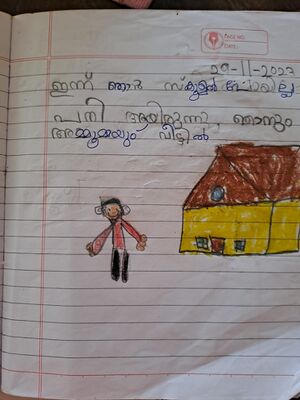 PAGE NO.
DATE:
29-11-2023
ഇന്ന് ഞാൻ സ്കൂളിൽ പോയില്ല
പനി ആയിരുന്നു. ഞാനും
അമ്മൂമ്മയും വീട്ടിൽ